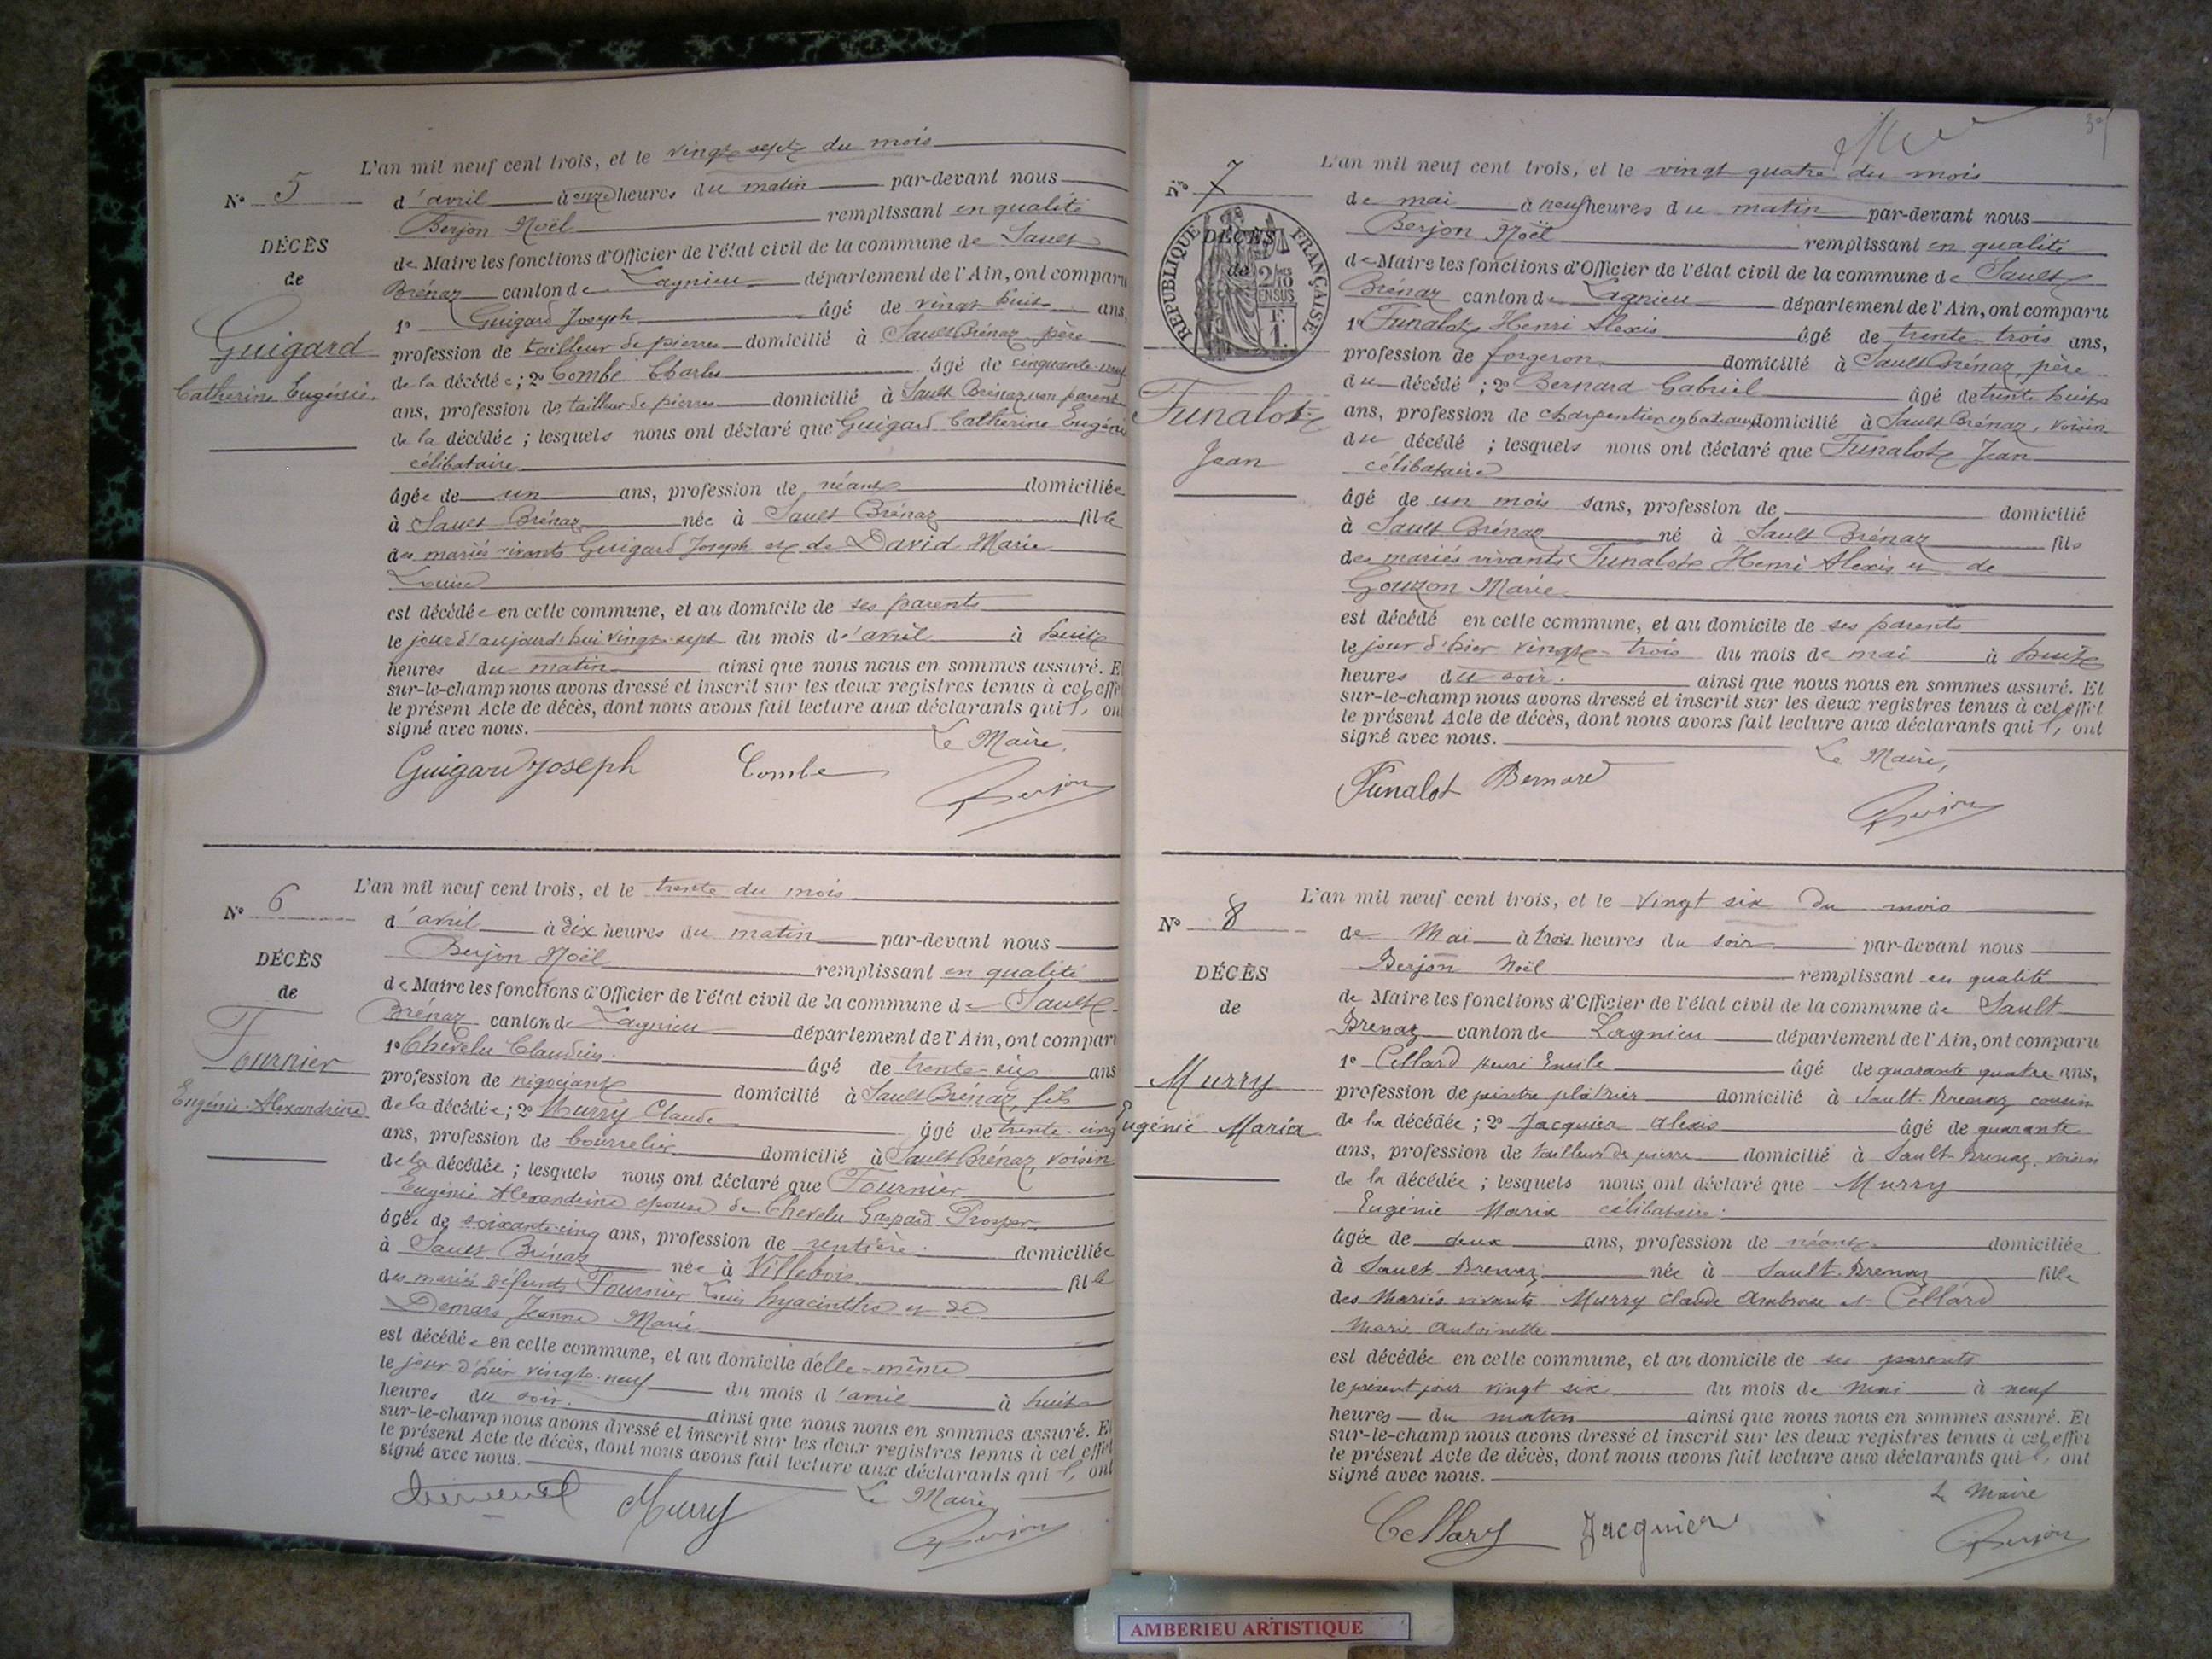 L'an mil neuf cent trois, et le vingt sept du mois
N° 5
d'avril à onze heures du matin par-devant nous
Berjon Noël remplissant en qualité
DÉCÈS
de Maire les fonctions d'Officier de l'état civil de la commune de Sault
de
Brénaz canton de Lagnieu département de l'Ain, ont comparu
1° Guigard Joseph âgé de vingt huit ans,
Guigard
profession de tailleur de pierres domicilié à Sault Brénaz père
Catherine Eugénie.
de la décédée; 2° Combe Charles âgé de cinquante-neuf
ans, profession de tailleur de pierres domicilié à Sault Brénaz non parent
de la décédée; lesquels nous ont déclaré que Guigard Catherine Eugénie
célibataire
âgée de un ans, profession de néant domiciliée
à Sault Brénaz née à Sault Brénaz fille
des mariés vivants Guigard Joseph et de David Marie
Louise
est décédée en cette commune, et au domicile de ses parents
le jour d'aujourd'hui vingt-sept du mois d'avril à huit
heures du matin ainsi que nous nous en sommes assuré. Et
sur-le-champ nous avons dressé et inscrit sur les deux registres tenus à cet effet
le présent Acte de décès, dont nous avons fait lecture aux déclarants qui l, ont
signé avec nous.
Le Maire,
Guigard Joseph Combe Berjon
L'an mil neuf cent trois, et le trente du mois
N° 6
d'avril à dix heures du matin par-devant nous
Berjon Noël remplissant en qualité
DÉCÈS
de Maire les fonctions d'Officier de l'état civil de la commune de Sault
de
Brénaz canton de Lagnieu département de l'Ain, ont comparu
1° Chevelu Claudius. âgé de trente-six ans
Fournier
profession de négociant domicilié à Sault Brénaz, fils
Eugénie Alexandrine
de la décédée; 2° Murry Claude âgé de trente-cinq
ans, profession de bourrelier domicilié à Sault Brénaz, voisin
de la décédée; lesquels nous ont déclaré que Fournier
Eugénie Alexandrine épouse de Chevelu Gaspard Prosper
âgée de soixante cinq ans, profession de rentière. domiciliée
à Sault Brénaz née à Villebois fille
des mariés défunts Fournier Louis hyacinthe et de
Demars Jeanne Marie
est décédée en cette commune, et au domicile d'elle-même
le jour d'hier vingt-neuf du mois d'avril à huit
heures du soir. ainsi que nous nous en sommes assuré. Et
sur-le-champ nous avons dressé et inscrit sur les deux registres tenus à cet effet
le présent Acte de décès, dont nous avons fait lecture aux déclarants qui l, ont
signé avec nous.
Le Maire
Murry Berjon
L'an mil neuf cent trois, et le vingt quatre du mois
N° 7
de mai à neuf heures du matin par-devant nous
Berjon Noël remplissant en qualité
RÉPUBLIQUE FRANÇAISE
DÉCÈS
de
2/10 EN SUS
1F.
de Maire les fonctions d'Officier de l'état civil de la commune de Sault
Brénaz canton de Lagnieu département de l'Ain, ont comparu
1° Funalot Henri Alexis âgé de trente trois ans,
profession de forgeron domicilié à Sault Brénaz, père
Funalot
Jean
du décédé; 2° Bernard Gabriel âgé de trente huit
ans, profession de charpentier en bateaux domicilié à Sault Brénaz, voisin
du décédé; lesquels nous ont déclaré que Funalot Jean
célibataire
âgé de un mois sans, profession de domicilié
à Sault Brénaz né à Sault Brénaz fils
des mariés vivants Funalot Henri Alexis et de
Gouzon Marie
est décédé en cette commune, et au domicile de ses parents
le jour d'hier vingt-trois du mois de mai à huit
heures du soir. ainsi que nous nous en sommes assuré. Et
sur-le-champ nous avons dressé et inscrit sur les deux registres tenus à cet effet
le présent Acte de décès, dont nous avons fait lecture aux déclarants qui l, ont
signé avec nous.
Le Maire,
Funalot Bernard Berjon
L'an mil neuf cent trois, et le vingt six du mois
N° 8
de Mai à trois heures du soir par-devant nous
Berjon Noël remplissant en qualité
DÉCÈS
de Maire les fonctions d'Officier de l'état civil de la commune de Sault
de
Brenaz canton de Lagnieu département de l'Ain, ont comparu
1° Cellard Henri Emile âgé de quarante quatre ans,
Murry
profession de peintre plâtrier domicilié à Sault-Brenaz cousin
Eugénie Maria
de la décédée; 2° Jacquier Alexis âgé de quarante
ans, profession de tailleur de pierre domicilié à Sault-Brenaz, voisin
de la décédée; lesquels nous ont déclaré que Murry
Eugénie Maria célibataire.
âgée de deux ans, profession de néant domiciliée
à Sault-Brenaz née à Sault-Brenaz fille
des Mariés vivants Murry Claude Ambroise et Cellard
Marie Antoinette
est décédée en cette commune, et au domicile de ses parents
le présent jour vingt six du mois de mai à neuf
heures du matin ainsi que nous nous en sommes assuré. Et
sur-le-champ nous avons dressé et inscrit sur les deux registres tenus à cet effet
le présent Acte de décès, dont nous avons fait lecture aux déclarants qui l, ont
signé avec nous.
Le Maire
Cellard Jacquier Berjon
AMBERIEU ARTISTIQUE